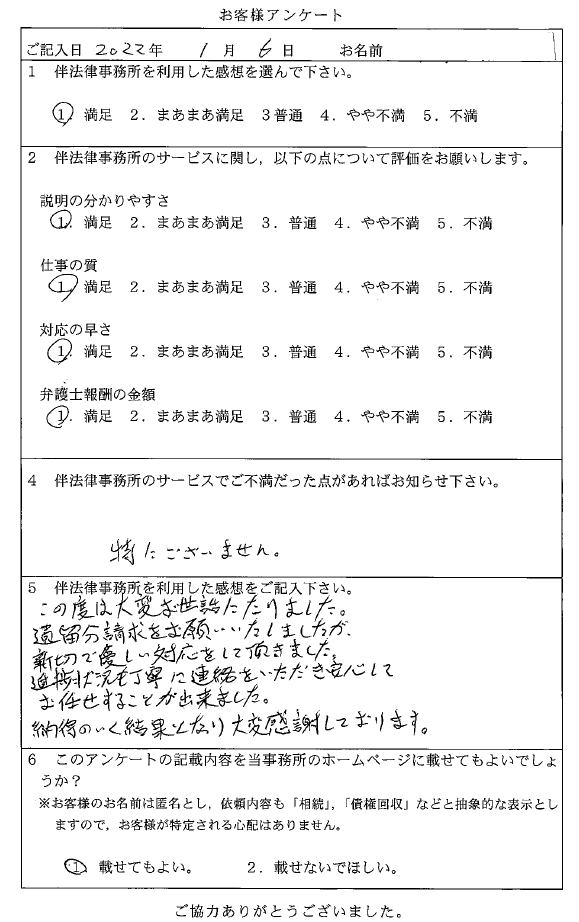 お客様アンケート
ご記入日 2022年 1月 6日 お名前
1 伴法律事務所を利用した感想を選んで下さい。
1. 満足 2. まあまあ満足 3普通 4. やや不満 5. 不満
2 伴法律事務所のサービスに関し，以下の点について評価をお願いします。
説明の分かりやすさ
1. 満足 2. まあまあ満足 3. 普通 4. やや不満 5. 不満
仕事の質
1. 満足 2. まあまあ満足 3. 普通 4. やや不満 5. 不満
対応の早さ
1. 満足 2. まあまあ満足 3. 普通 4. やや不満 5. 不満
弁護士報酬の金額
1. 満足 2. まあまあ満足 3. 普通 4. やや不満 5. 不満
4 伴法律事務所のサービスでご不満だった点があればお知らせ下さい。
特にございません。
5 伴法律事務所を利用した感想をご記入下さい。
この度は大変お世話になりました。
遺留分請求をお願いいたしましたが、
親切で優しい対応をして頂きました。
進捗状況も丁寧に連絡をいただき安心して
お任せすることが出来ました。
納得のいく結果となり大変感謝しております。
6 このアンケートの記載内容を当事務所のホームページに載せてもよいでしょ
うか？
※お客様のお名前は匿名とし，依頼内容も「相続」，「債権回収」などと抽象的な表示とし
ますので，お客様が特定される心配はありません。
1. 載せてもよい。 2. 載せないでほしい。
ご協力ありがとうございました。